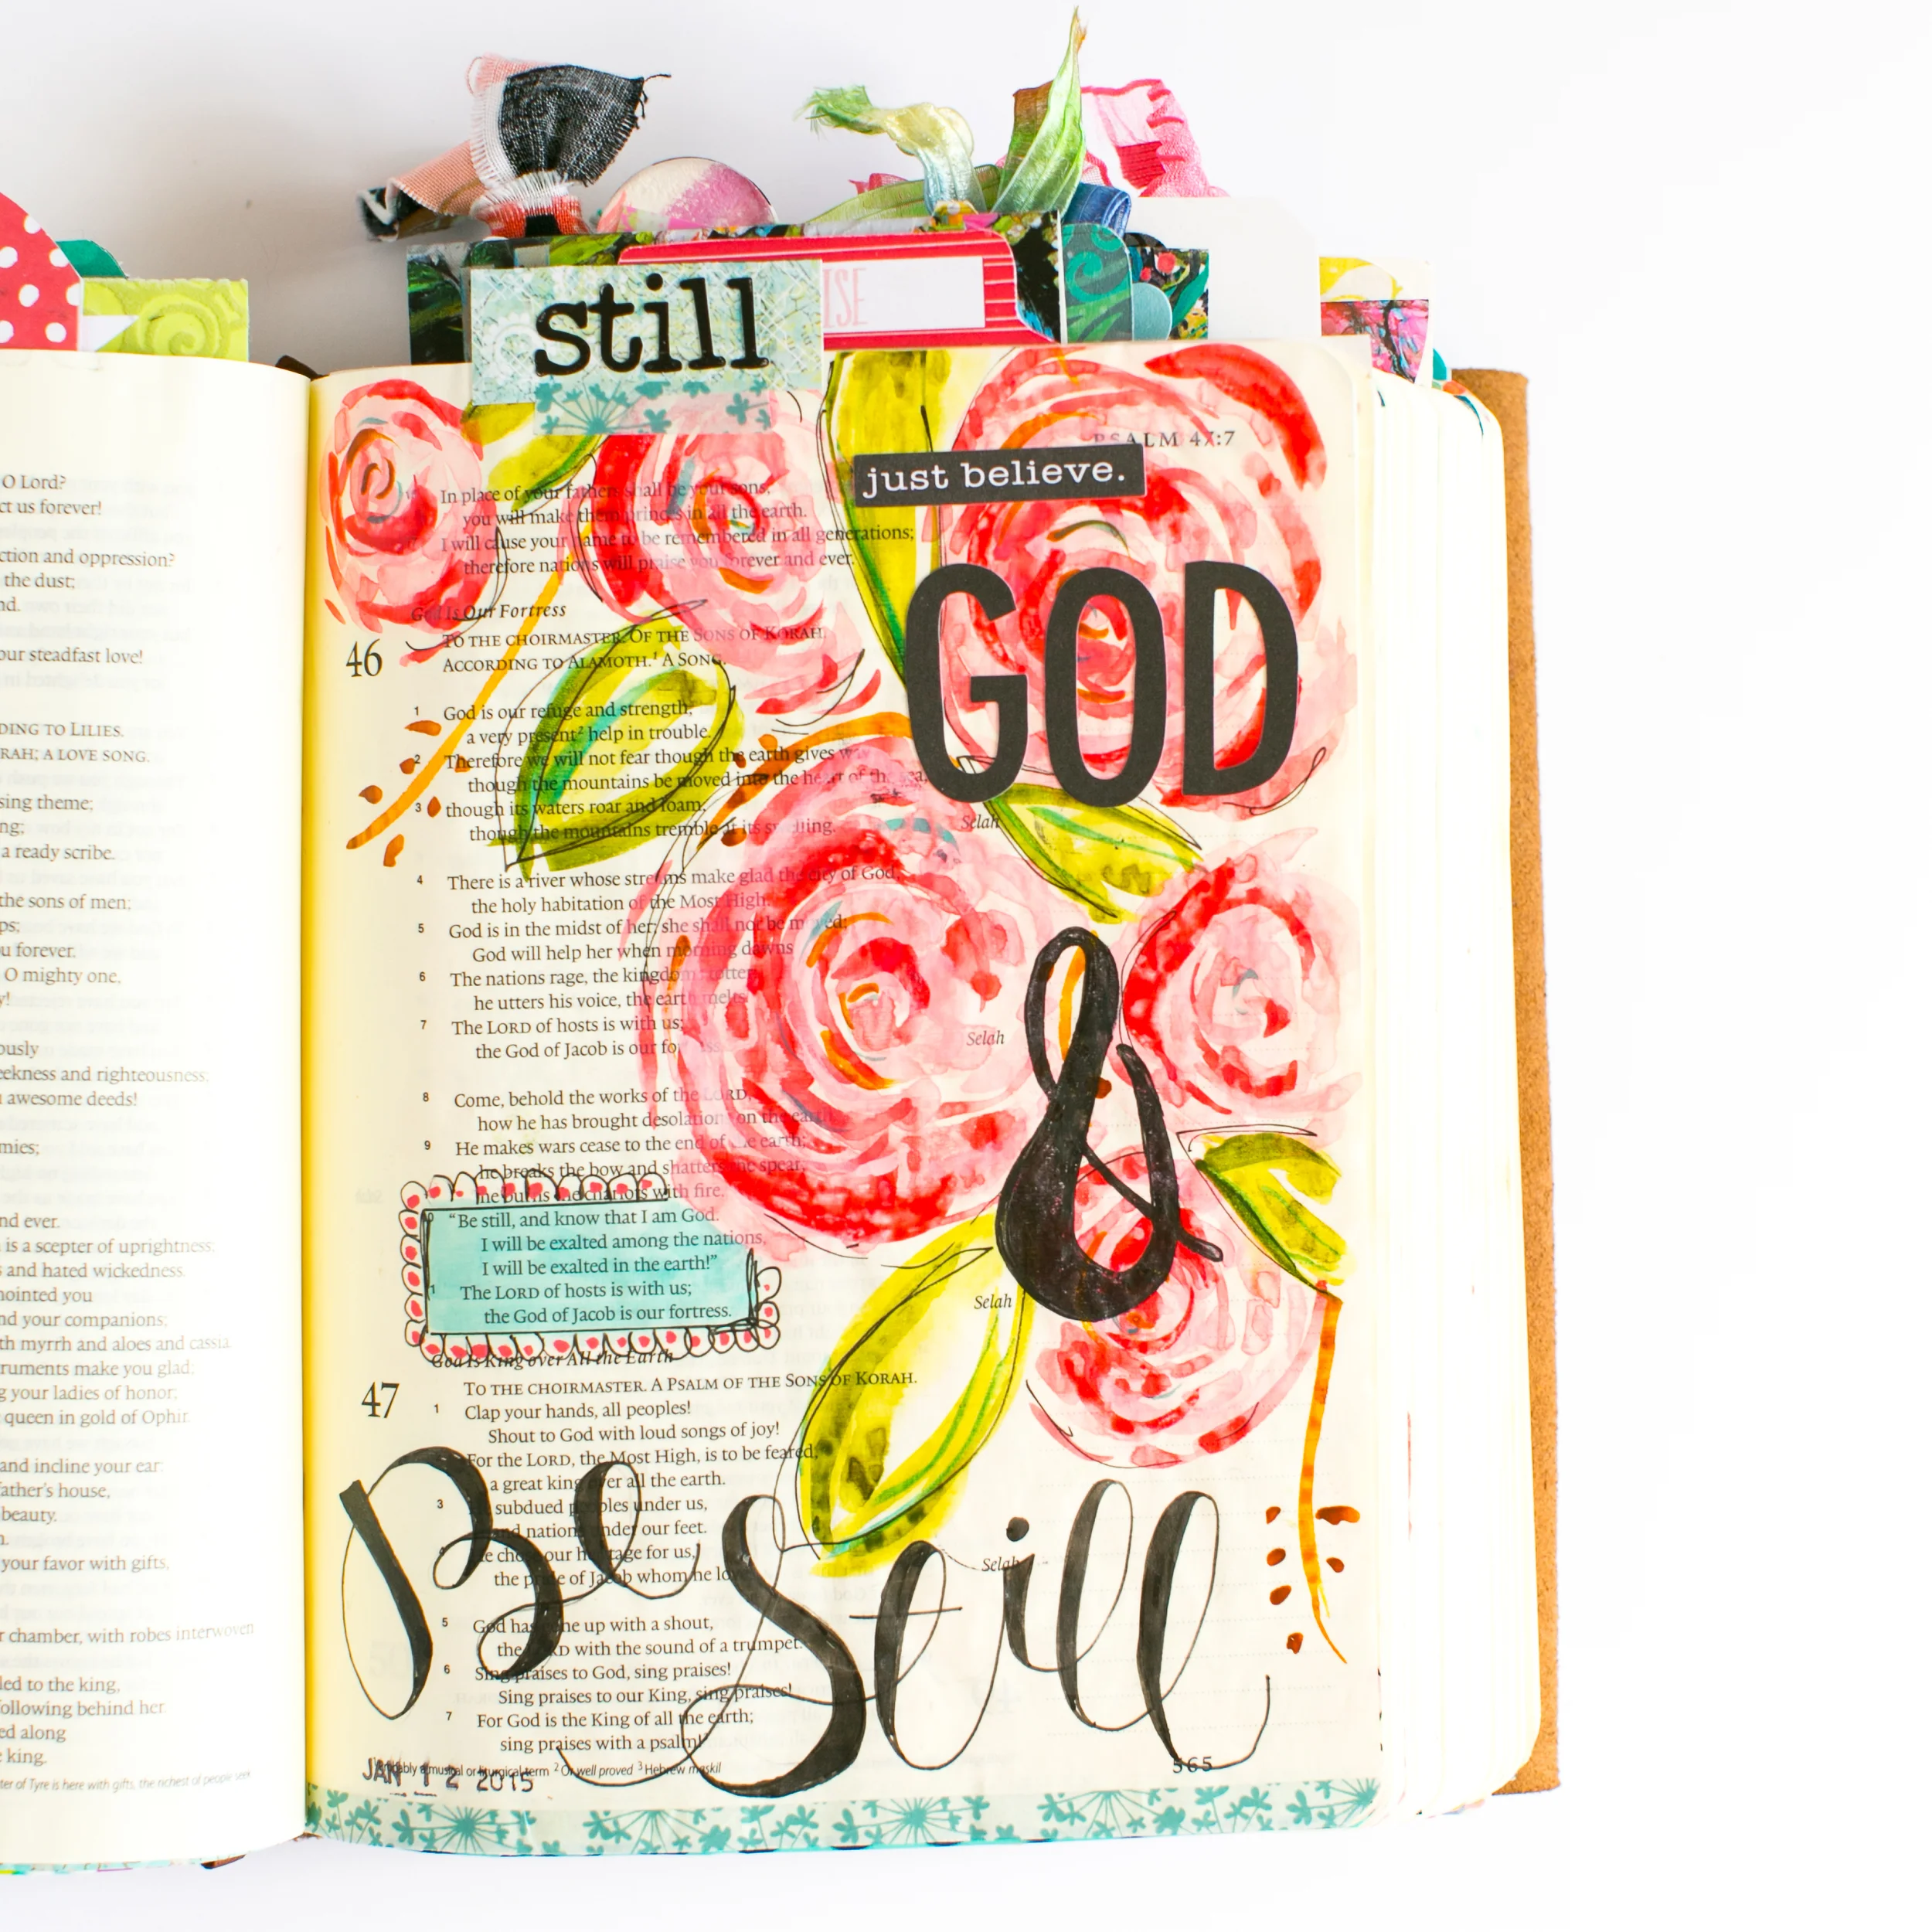 still
ISE
O Lord?
ct us forever!
ction and oppression?
the dust;
nd.
our steadfast love!
DING TO LILIES.
RAH; A LOVE SONG.
sing theme;
ng;
a ready scribe.
the sons of men;
ps;
u forever.
O mighty one,
y!
ously
eekness and righteousness;
awesome deeds!
mies;
nd ever.
is a scepter of uprightness;
and hated wickedness.
nointed you
nd your companions;
th myrrh and aloes and cassia.
truments make you glad;
g your ladies of honor;
queen in gold of Ophir.
and incline your ear:
father's house,
beauty.
your favor with gifts,
r chamber, with robes interwoven
led to the king,
following behind her.
ed along
king.
ter of Tyre is here with gifts, the richest of people seek
PSALM 47:7
just believe.
In place of your fathers shall be your sons;
you will make them princes in all the earth.
I will cause your name to be remembered in all generations;
therefore nations will praise you forever and ever.
GOD
God Is Our Fortress
46 TO THE CHOIRMASTER. OF THE SONS OF KORAH.
ACCORDING TO ALAMOTH.1 A SONG.
1 God is our refuge and strength,
a very present2 help in trouble.
2 Therefore we will not fear though the earth gives way
though the mountains be moved into the heart of the sea,
3 though its waters roar and foam,
though the mountains tremble at its swelling. Selah
4 There is a river whose streams make glad the city of God,
the holy habitation of the Most High.
5 God is in the midst of her; she shall not be moved;
God will help her when morning dawns
6 The nations rage, the kingdoms totter;
he utters his voice, the earth melts.
7 The LORD of hosts is with us;
the God of Jacob is our fortress. Selah
&
8 Come, behold the works of the LORD,
how he has brought desolations on the earth.
9 He makes wars cease to the end of the earth;
he breaks the bow and shatters the spear;
he burns the chariots with fire.
"Be still, and know that I am God.
I will be exalted among the nations,
I will be exalted in the earth!"
The LORD of hosts is with us;
the God of Jacob is our fortress. Selah
God Is King over All the Earth
47 TO THE CHOIRMASTER. A PSALM OF THE SONS OF KORAH.
1 Clap your hands, all peoples!
Shout to God with loud songs of joy!
For the LORD, the Most High, is to be feared,
a great king over all the earth.
3 subdued peoples under us,
and nations under our feet.
4 He chose our heritage for us,
the pride of Jacob whom he loves. Selah
Be Still
5 God has gone up with a shout,
the LORD with the sound of a trumpet.
6 Sing praises to God, sing praises!
Sing praises to our King, sing praises!
7 For God is the King of all the earth;
sing praises with a psalm!
1 Probably a musical or liturgical term 2 Or well proved 3 Hebrew maskil
565
JAN 12 2015